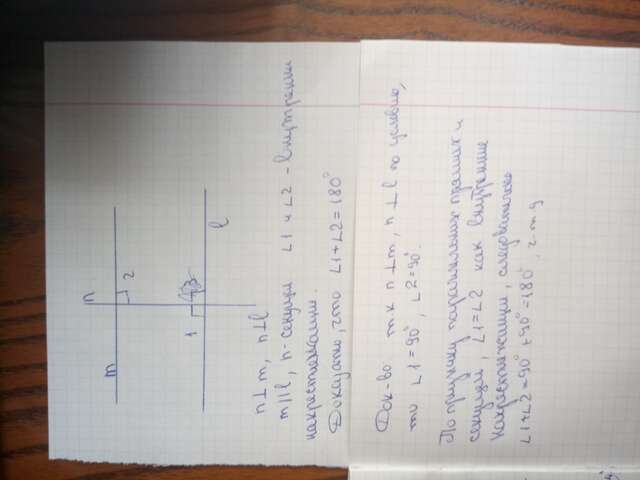 m
n
2
1
l
n⊥m, n⊥l
m∥l, n- секущая ∠1 и ∠2 - внутренние
накрестлежащие.
Доказать, что ∠1+∠2=180°
Док-во: т.к n⊥m, n⊥l по условию,
то ∠1=90°, ∠2=90°.
По признаку параллельных прямых и
секущей, ∠1=∠2 как внутренние
накрестлежащии, следовательно
∠1+∠2=90°+90°=180°, ч-т д